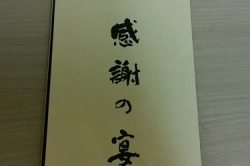 感謝の宴